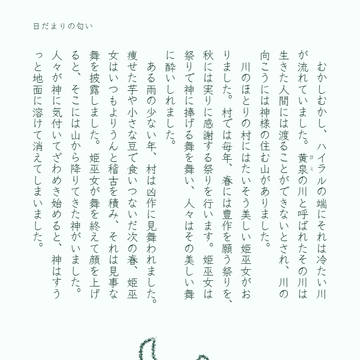 日だまりの匂い
むかしむかし、ハイラルの端にそれは冷たい川
が流れていました。黄泉の川と呼ばれたその川は
生きた人間には渡ることができないとされ、川の
向こうには神様の住む山がありました。
川のほとりの村にはたいそう美しい姫巫女がお
りました。村では毎年、春には豊作を願う祭りを、
秋には実りに感謝する祭りを行います。姫巫女は
祭りで神に捧げる舞を舞い、人々はその美しい舞
に酔いしれました。
ある雨の少ない年、村は凶作に見舞われました。
痩せた芋や小さな豆で食いつないだ次の春、姫巫
女はいつもよりうんと稽古を積み、それは見事な
舞を披露しました。姫巫女が舞を終えて顔を上げ
ると、そこには山から降りてきた神がいました。
人々が神に気付いてざわめき始めると、神はすう
っと地面に溶けて消えてしまいました。